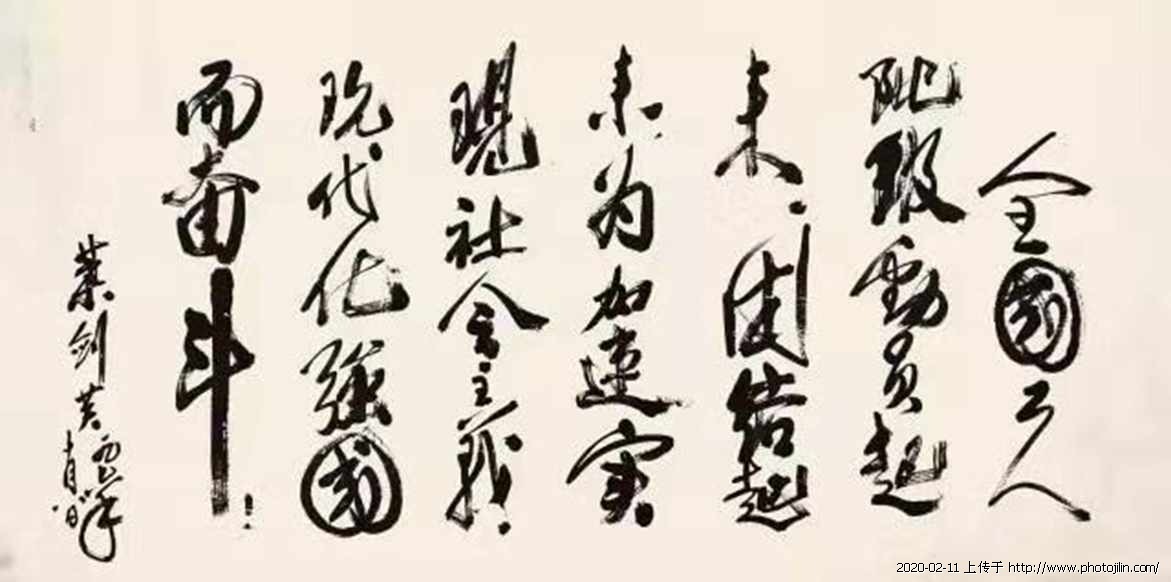 全國工人
階級動員起
来，团结起
来，为加速实
現社会主義
现代化强國
而奋斗！
葉剑英
2020-02-11 上传于 http://www.photojilin.com/